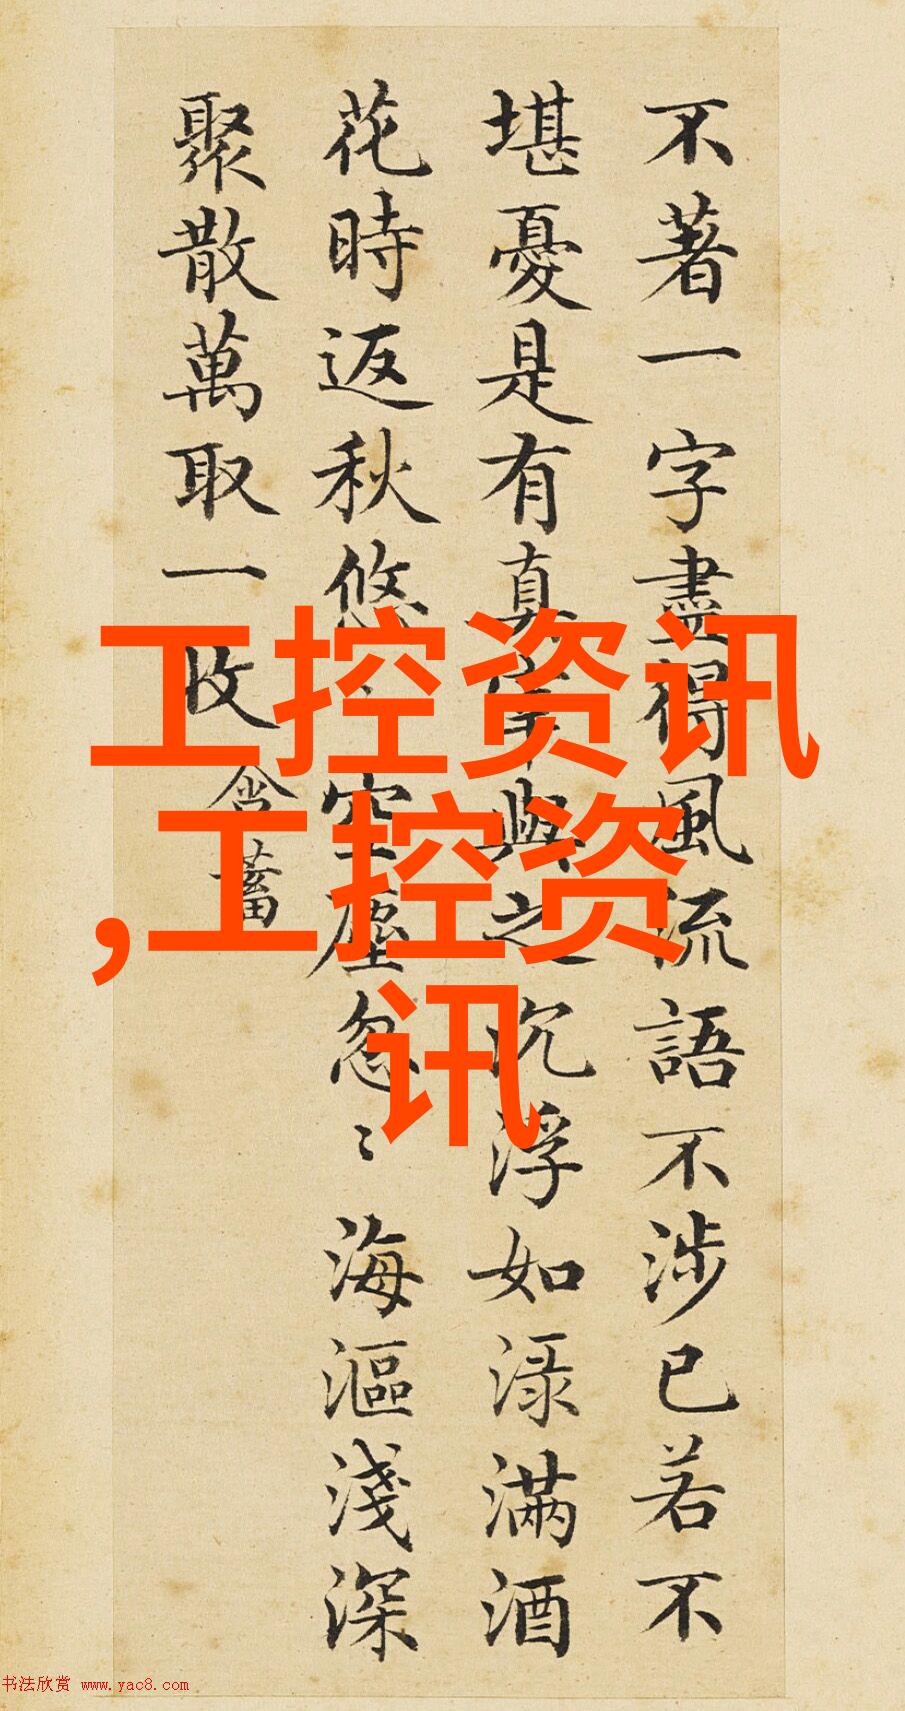 不著一字盡得風流語不涉已若不
堪憂是有真宰與之沉浮如淥滿酒
花時返秋悠〻空塵忽〻海漚淺深
聚散萬取一收含蓄
工控资讯
,工控资
讯
书法欣赏 www.yac8.com